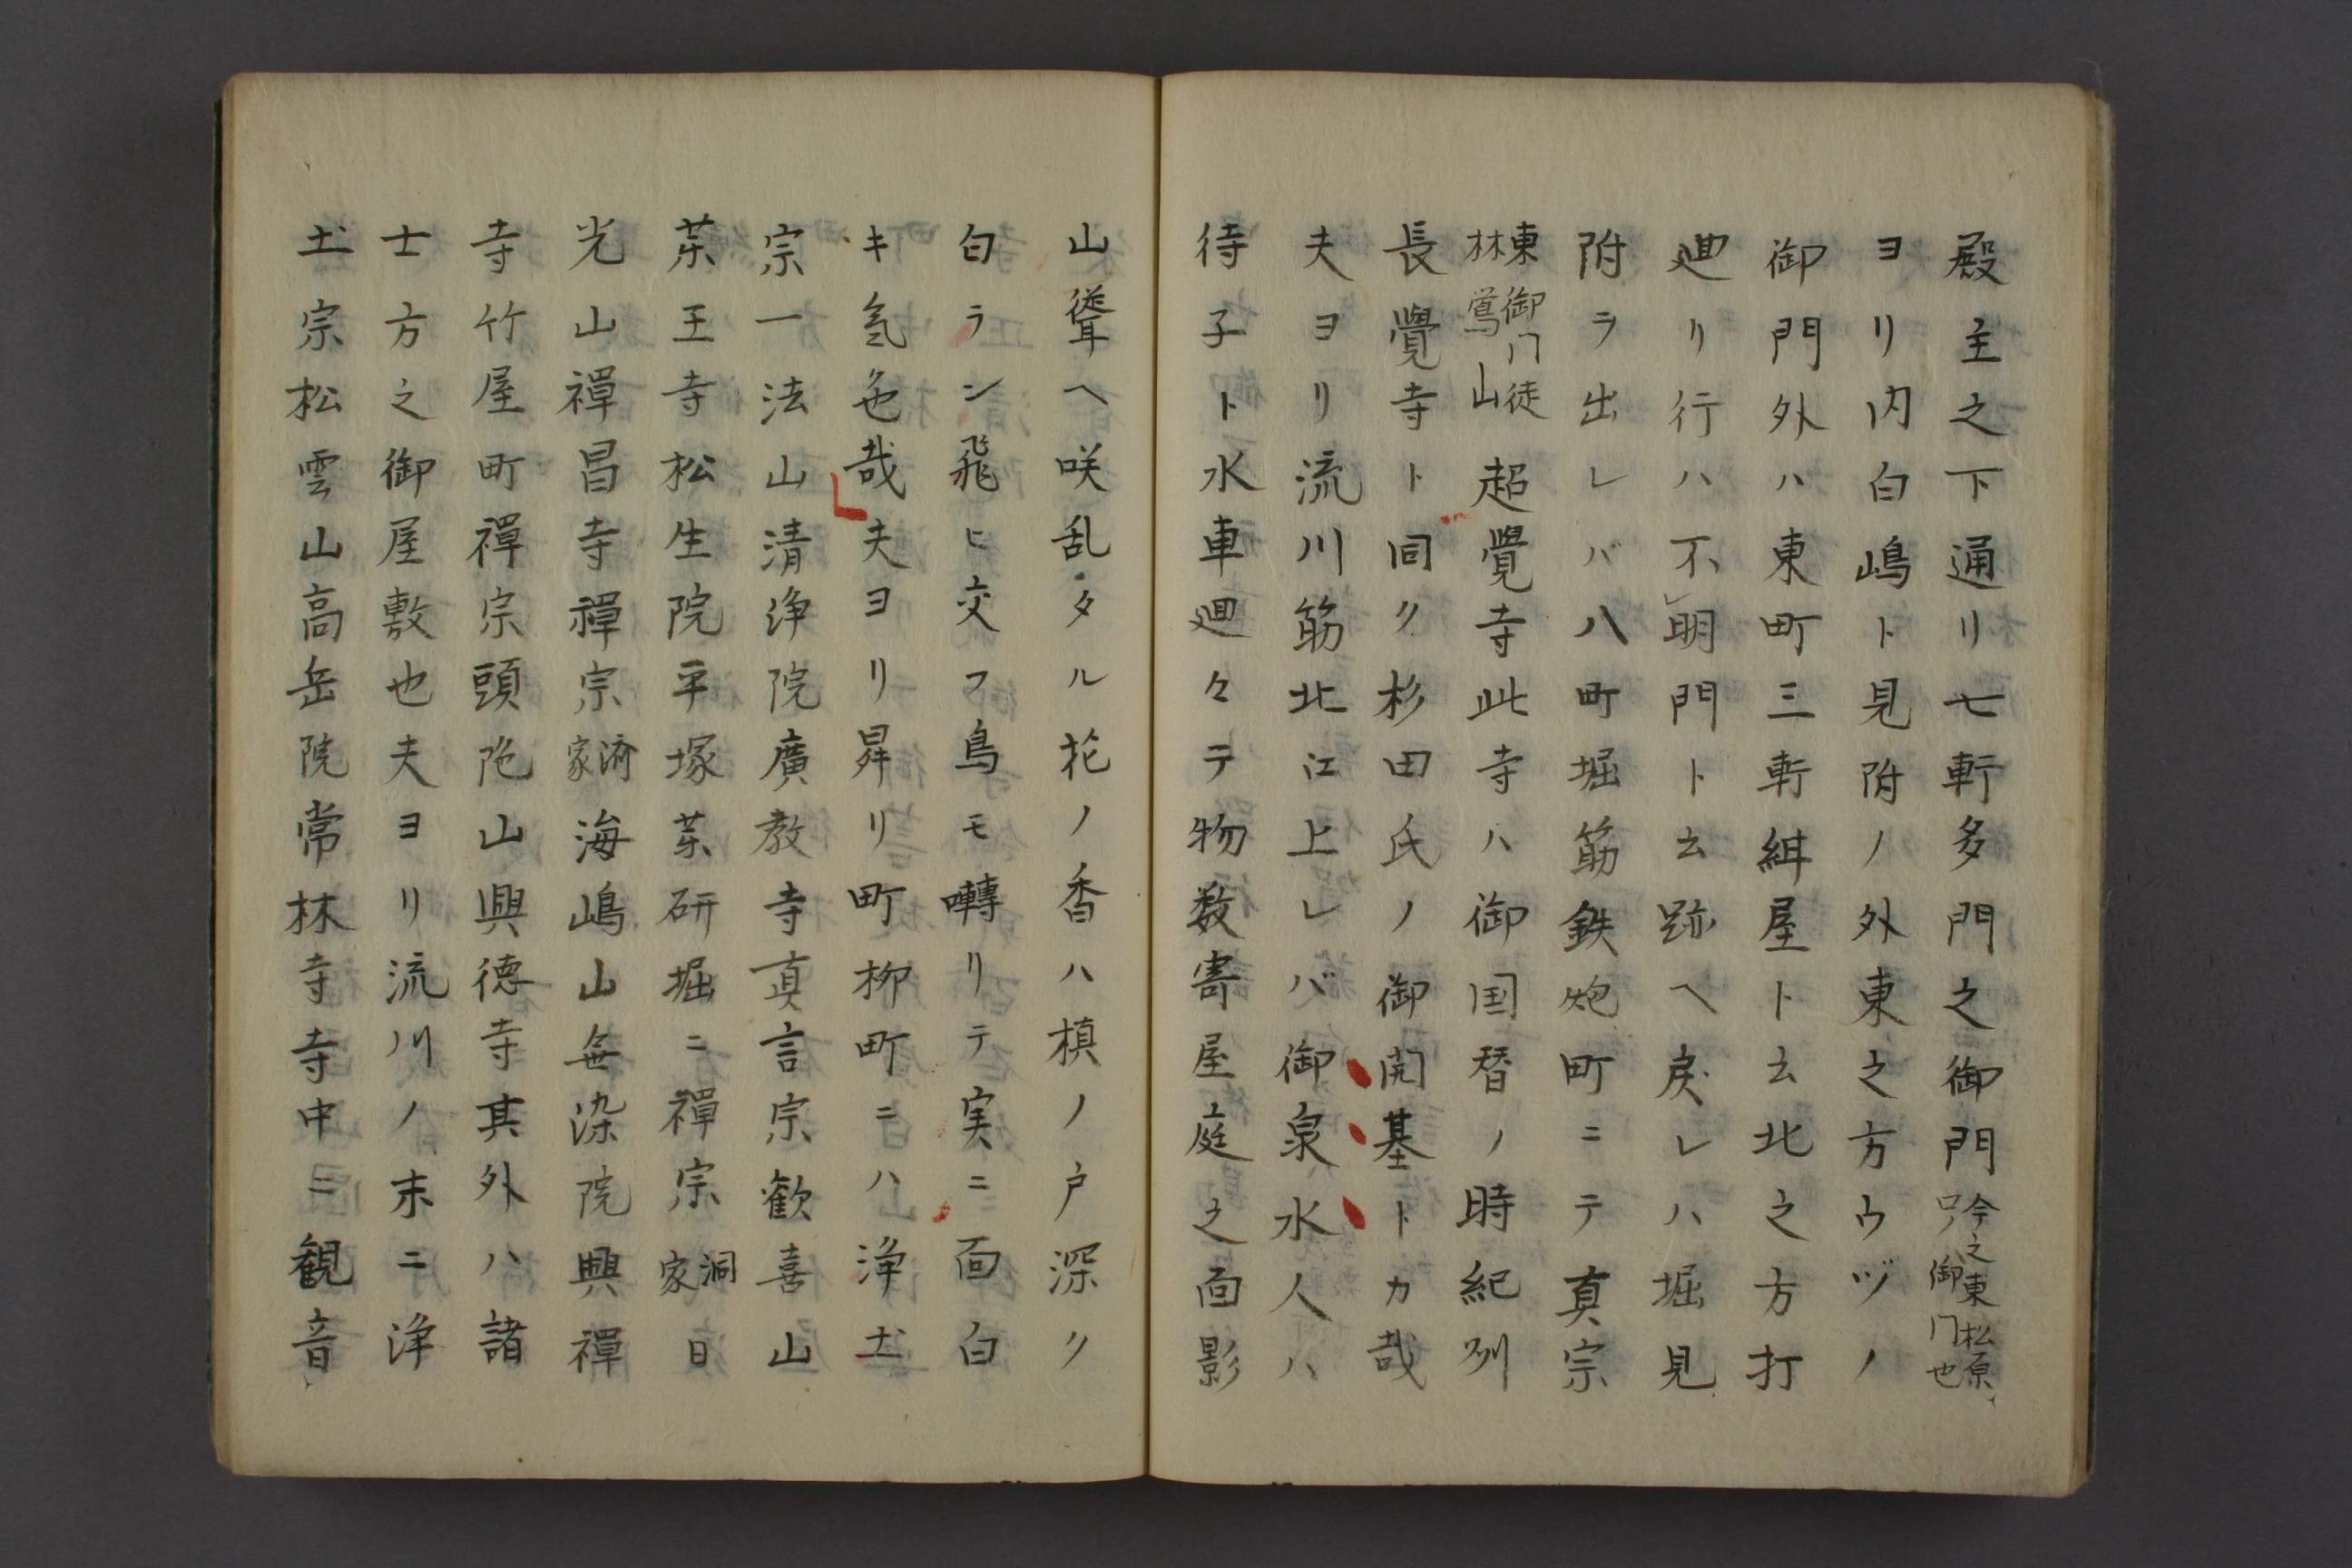 殿主之下通リ七軒多門之御門今之東松原口ノ御門也
ヨリ内白嶋ト見附ノ外東之方ウヅノ
御門外ハ東町三軒紺屋ト云北之方打
廻リ行ハ不レ明門ト云跡ヘ戻レハ堀見
附ヲ出レバ八町堀筋鉄炮町ニテ真宗
東林御门徒鴬山超覺寺此寺ハ御国替ノ時紀刕
長覺寺ト同ク杉田氏ノ御開基トカ哉
夫ヨリ流川筋北江上レバ御泉水人ハ
待子ト水車廻々テ物数寄屋庭之面影
山聳ヘ咲乱タル花ノ香ハ槙ノ戸深ク
白ラン飛ヒ交フ鳥モ囀リテ実ニ面白
キ氣色哉夫ヨリ昇リ町柳町ニハ浄𡈽
宗一法山清浄院廣教寺真言宗歓喜山
茶王寺松生院平塚茶研堀ニ禪宗洞家日
光山禪昌寺禪宗済家海嶋山無染院興禪
寺竹屋町禪宗頭陀山興徳寺其外ハ諸
士方之御屋敷也夫ヨリ流川ノ末ニ浄
𡈽宗松雲山高岳院常林寺寺中ニ観音